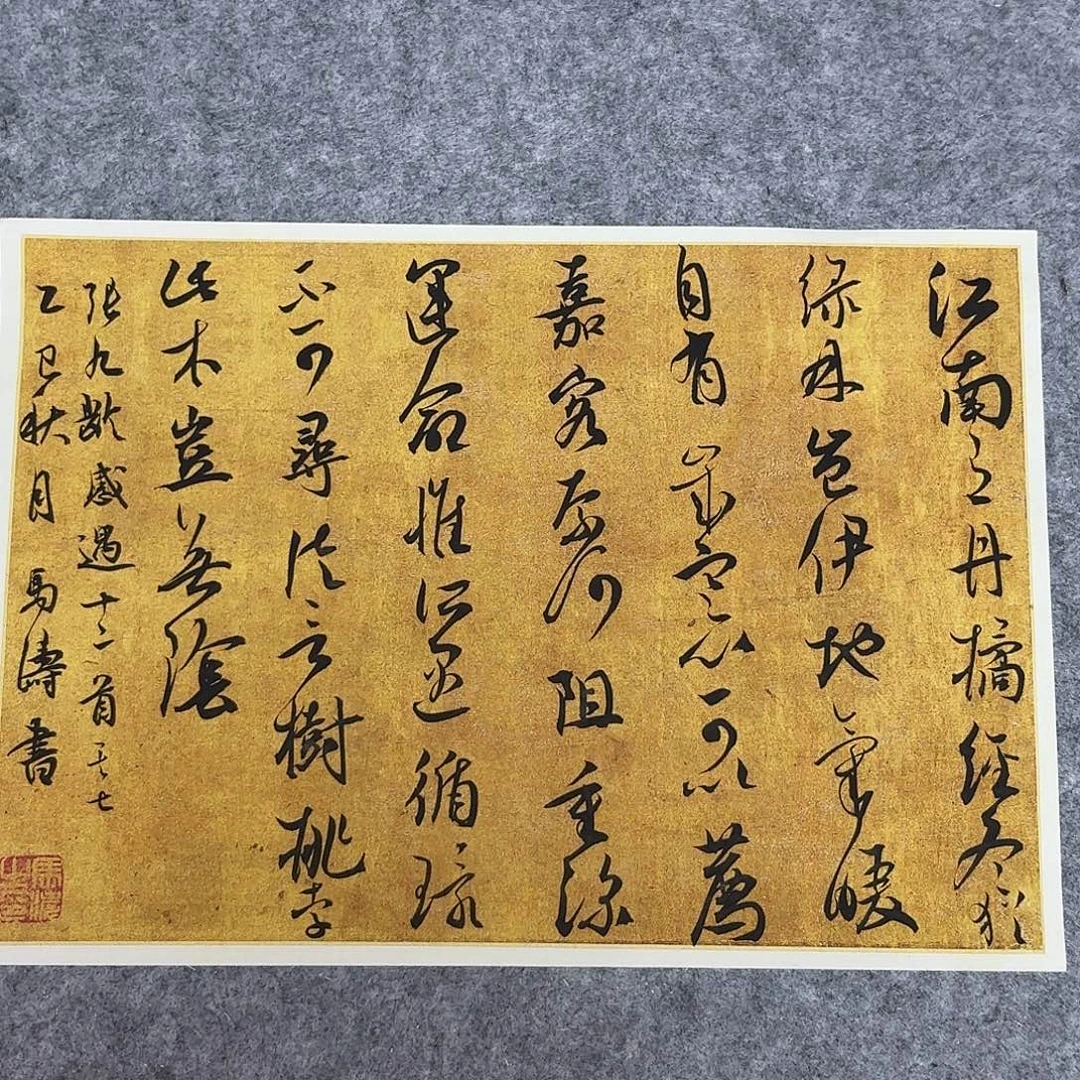 江南有丹橘經冬猶
綠林豈伊地氣暖
自有歲寒心可以薦
嘉客奈何阻重深
運命惟所遇循環
不可尋徒言樹桃李
此木豈無陰
張九齡感遇十二首其七
乙巳秋月馬濤書